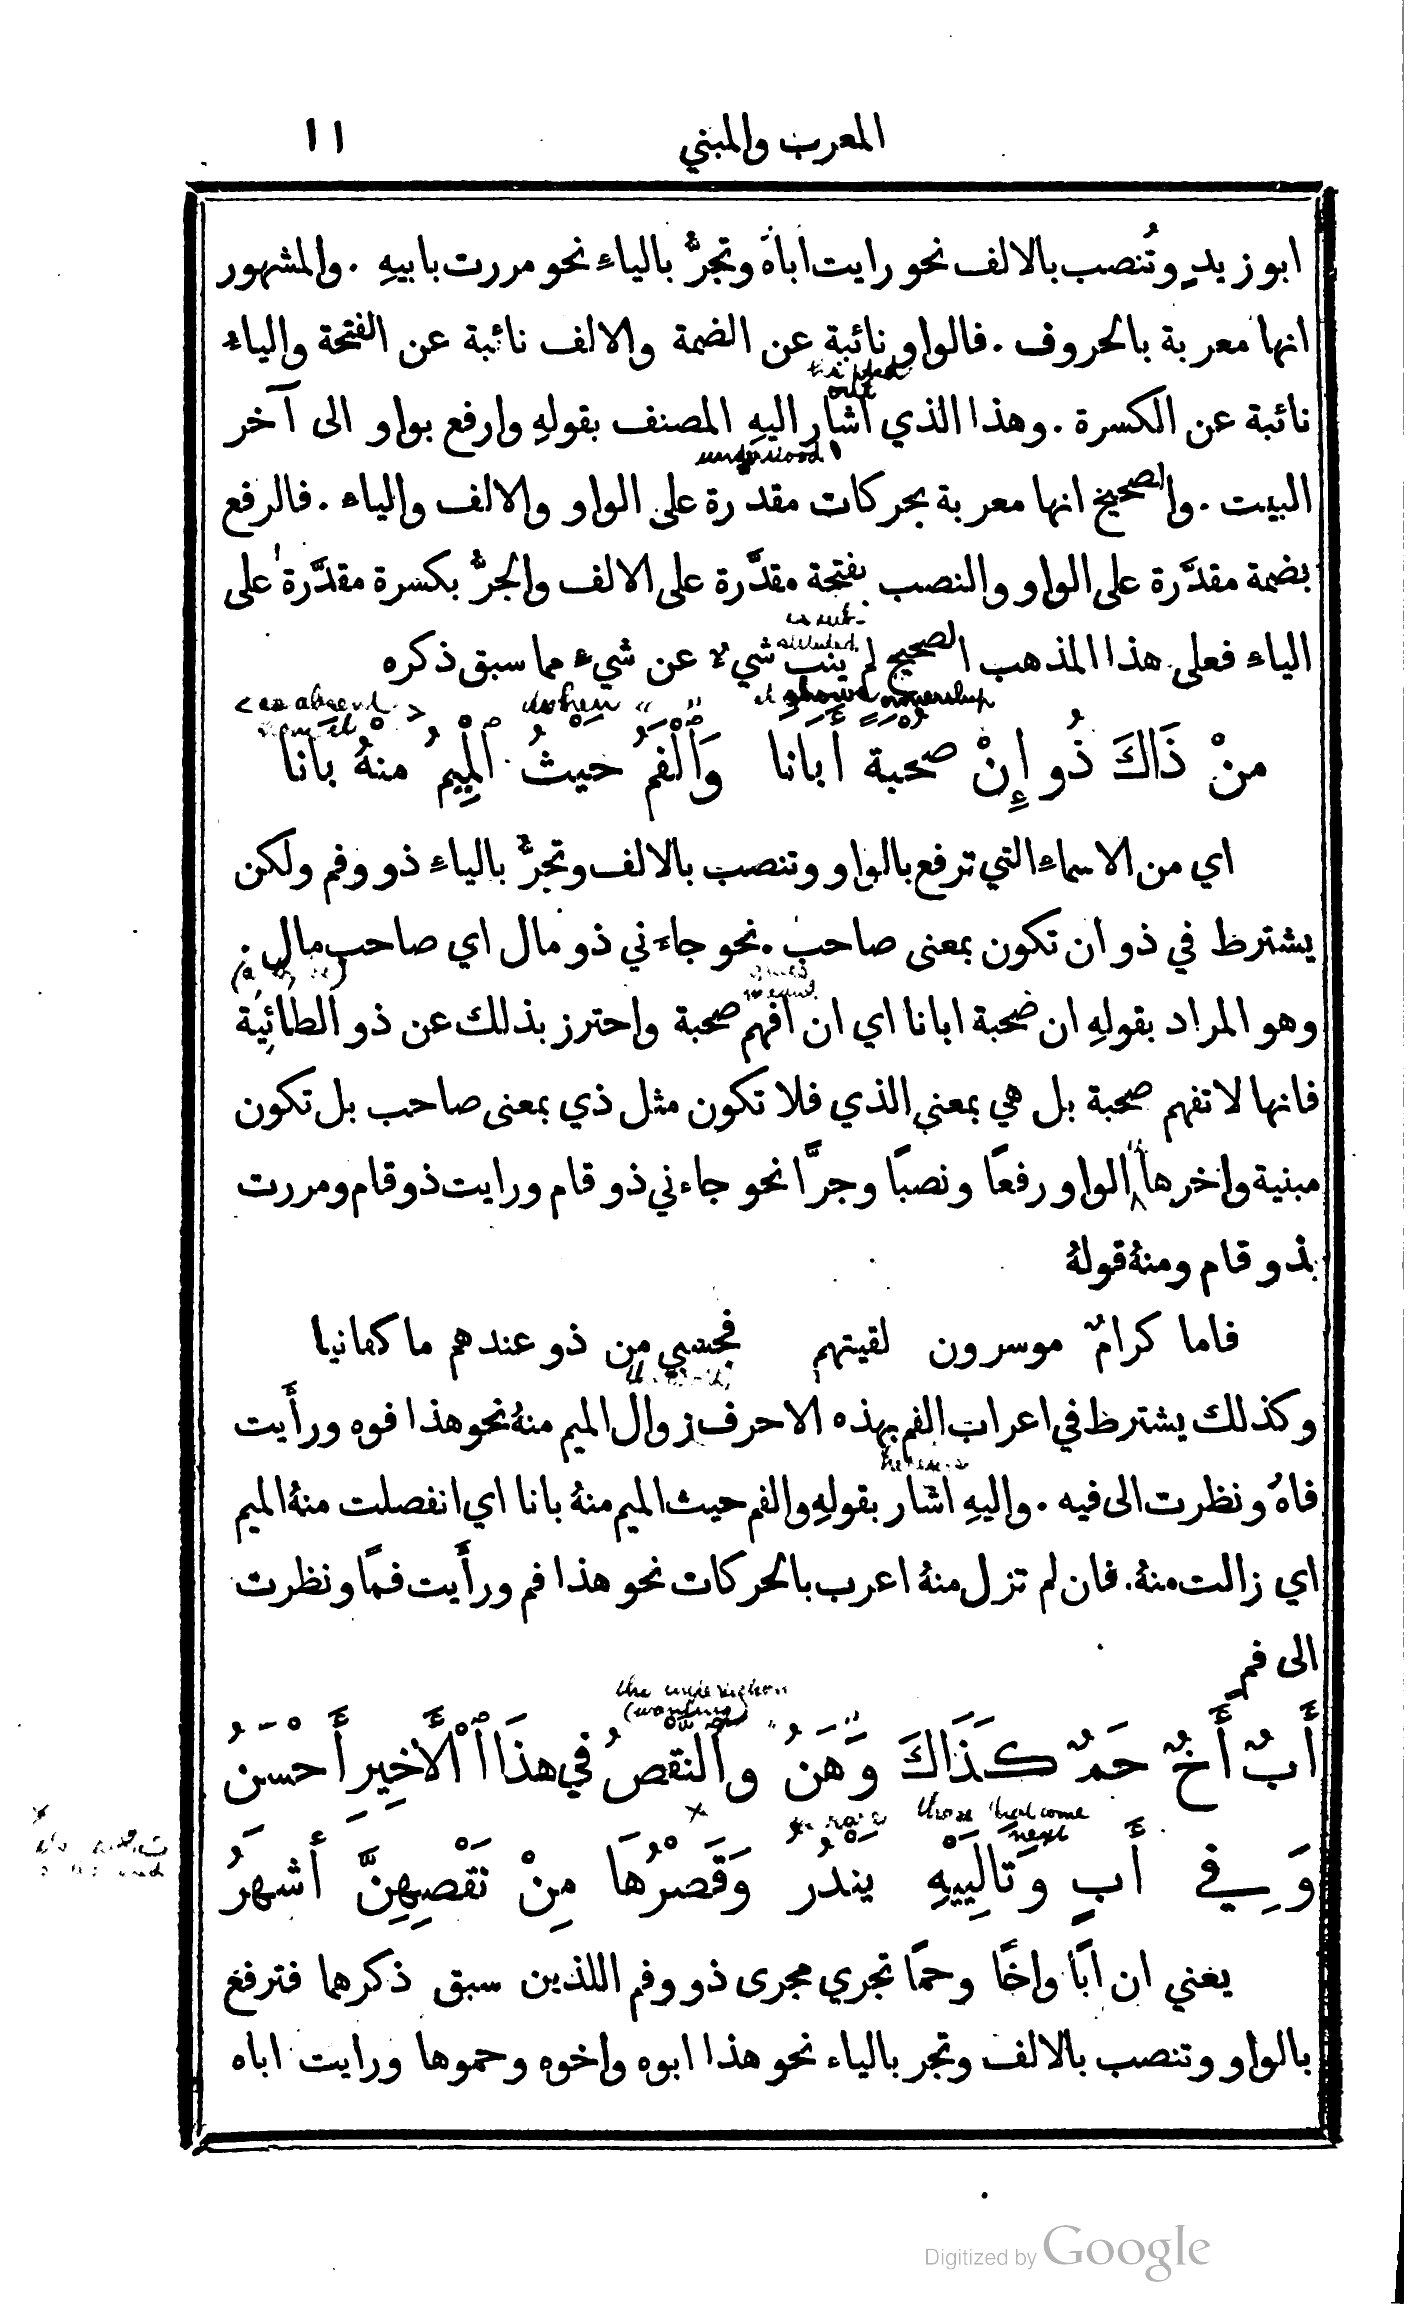 المعرب والمبني ١١
ابو زيدٍ وتُنصب بالالف نحو رايت اباهَ وتجرُّ بالياءِ نحو مررت بابيهِ . والمشهور
انها معربة بالحروف . فالواو نائبة عن الضمة والالف نائبة عن الفتحة والياء
pointed out
نائبة عن الكسرة . وهذا الذي اشار اليهِ المصنف بقولهِ وارفع بواو الى آخر
understood
البيت . والصحيح انها معربة بحركات مقدرة على الواو والالف والياء . فالرفع
بضمة مقدَّرة على الواو والنصب بفتحة مقدَّرة على الالف والجرُّ بكسرة مقدَّرة على
is substituted
الياء فعلى هذا المذهب الصحيح لم ينب شي لا عن شيء مما سبق ذكره
<as absent from it> when " " it showed ownership
مِنْ ذَاكَ ذُو إِنْ صُحْبَةً أَبَانَا وَٱلْفَمُ حَيْثُ ٱلْمِيمُ مِنْهُ بَانَا
اي من الاسماء التي ترفع بالواو وتنصب بالالف وتجرُّ بالياءِ ذو وفم ولكن
يشترط في ذو ان تكون بمعنى صاحب . نحو جاءَني ذو مال اي صاحب مال .
وهو المراد بقولهِ ان صُحبة ابانا اي ان افهم صحبة واحترز بذلك عن ذو الطائيَّة
فانها لا تفهم صحبة بل هي بمعنى الذي فلا تكون مثل ذي بمعنى صاحب بل تكون
مبنية واخرها الواو رفعًا ونصبًا وجرًّا نحو جاءني ذو قام ورايت ذو قام ومررت
بذو قام ومنهُ قولهُ
فاما كرامٌ موسرون لقيتهم فحسبي من ذو عندهم ما كفانيا
وكذلك يشترط في اعراب الفم بهذه الاحرف زوال الميم منهُ نحو هذا فوه ورأَيت
فاهُ ونظرت الى فيه . واليهِ اشار بقولهِ والفم حيث الميم منهُ بانا اي انفصلت منهُ الميم
اي زالت منهُ. فان لم تزل منهُ اعرب بالحركات نحو هذا فم ورأَيت فمًا ونظرت
الى فمٍ
(wanting)
أَبٌ أَخٌ حَمٌ كَذَاكَ وَهَنُ وَالنَّقْصُ فِي هذَا ٱلْأَخِيرِ أَحْسَنُ
× is rare those that come next
وَفِي أَبٍ وَتَالِيَيْهِ يَنْدُرُ وَقَصْرُهَا مِنْ نَقْصِهِنَّ أَشْهَرُ
يعني ان ابًا واخًا وحمًا تجري مجرى ذو وفم اللذين سبق ذكرهما فترفع
بالواو وتنصب بالالف وتجر بالياء نحو هذا ابوه واخوه وحموها ورايت اباه
Digitized by Google